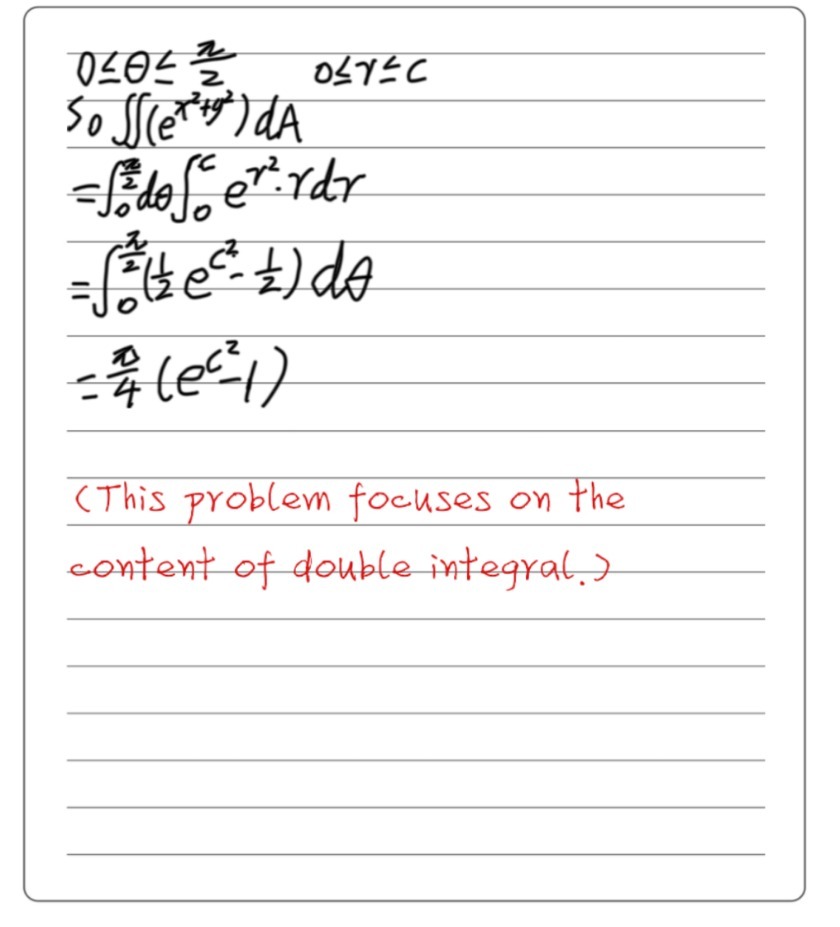 0≤θ≤π/2 0≤r≤c
So ∬(e^{x²+y²})dA
=∫₀^{π/2}dθ∫₀^{c} e^{r²}·rdr
=∫₀^{π/2}(1/2 e^{c²}-1/2)dθ
=π/4(e^{c²}-1)
(This problem focuses on the
content of double integral.)